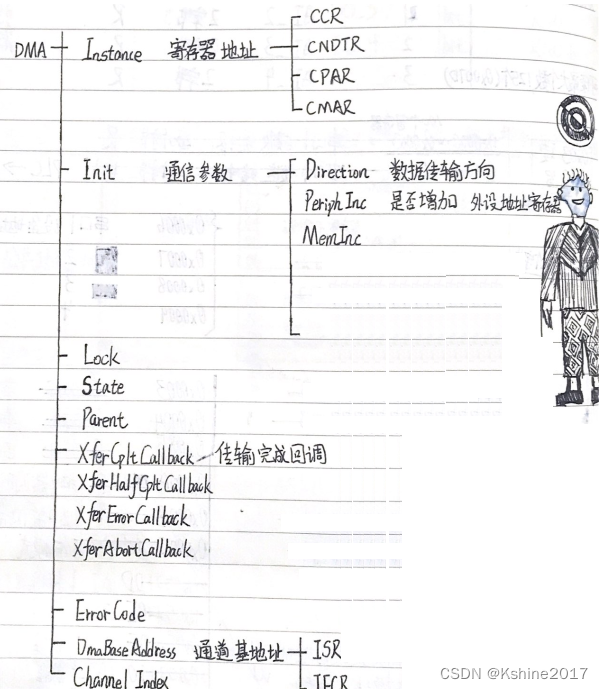 CCR
DMA Instance 寄存器地址 CNDTR
CPAR
CMAR
Init 通信参数 Direction 数据传输方向
PeriphInc 是否增加 外设地址寄存器
MemInc
Lock
State
Parent
XferCpltCallback 传输完成回调
XferHalfCpltCallback
XferErrorCallback
XferAbortCallback
ErrorCode
DmaBaseAddress 通道基地址 ISR
Channel Index IFCR
CSDN @Kshine2017